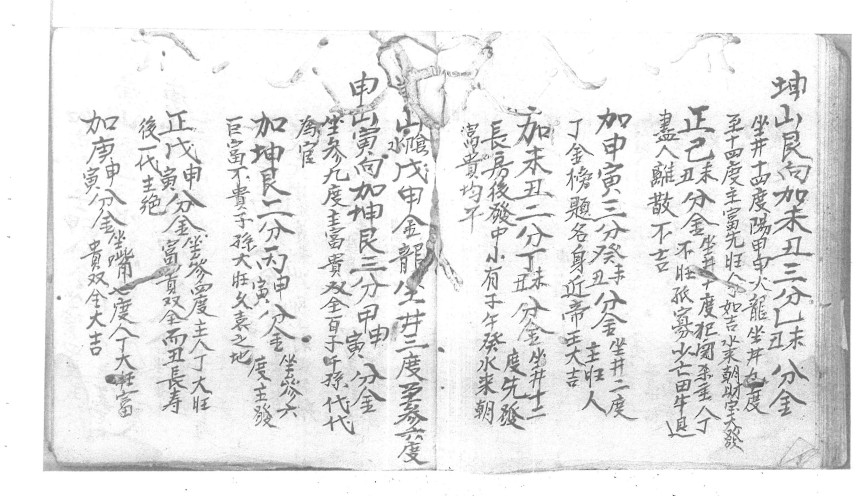 坤山艮向加未丑三分乙未乙丑分金
坐井十四度陽甲申火龍坐井九度
至十四度主富先旺人丁如吉水來朝財富大發
正己未己丑分金坐井十度犯関系主人丁
不旺孤寡少亡田牛退
盡人離散不吉
加申寅三分癸未癸丑分金坐井二度主旺人
丁金榜題名身近帝主大吉
加未丑二分丁未丁丑分金坐井十二度先發
長房後發中小有子午癸水來朝
富貴均平
山水戊申金龍坐井二度至參六度
申山寅向加坤艮三分甲申甲寅分金
坐參九度主富貴双全百子千孫代代
為官
加坤艮二分丙申丙寅分金坐參六度主發
巨富不貴子孫大旺久哀之地
正戊申戊寅分金坐參四度主人丁大旺
富貴双全而丑長寿
後一代主絕
加庚申庚寅分金坐嘴七度人丁大旺富
貴双全大吉